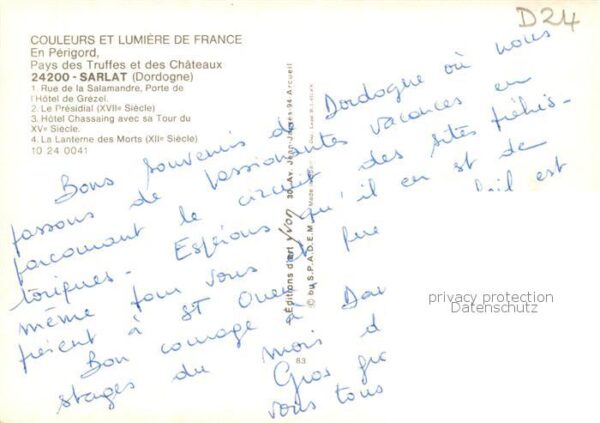 D24
COULEURS ET LUMIÈRE DE FRANCE
En Périgord,
Pays des Truffes et des Châteaux
24200 - SARLAT (Dordogne)
1. Rue de la Salamandre, Porte de
l'Hôtel de Grézel.
2. Le Présidial (XVIIe Siècle)
3. Hôtel Chassaing avec sa Tour du
XVe Siècle.
4. La Lanterne des Morts (XIIe Siècle)
10 24 0041
Bons souvenirs de Dordogne où nous
passons de passionnantes vacances en
parcourant le circuit des sites préhis-
toriques. Espérons qu'il en st de
même pour vous et que soleil est
à St Ouen
Bon courage à Dav
stages du mois d
Gros
vous tous
Editions d'art YVON 30, Av. Jean-Jaurès-94-Arcueil
© by S.P.A.D.E.M.
63
privacy protection
Datenschutz